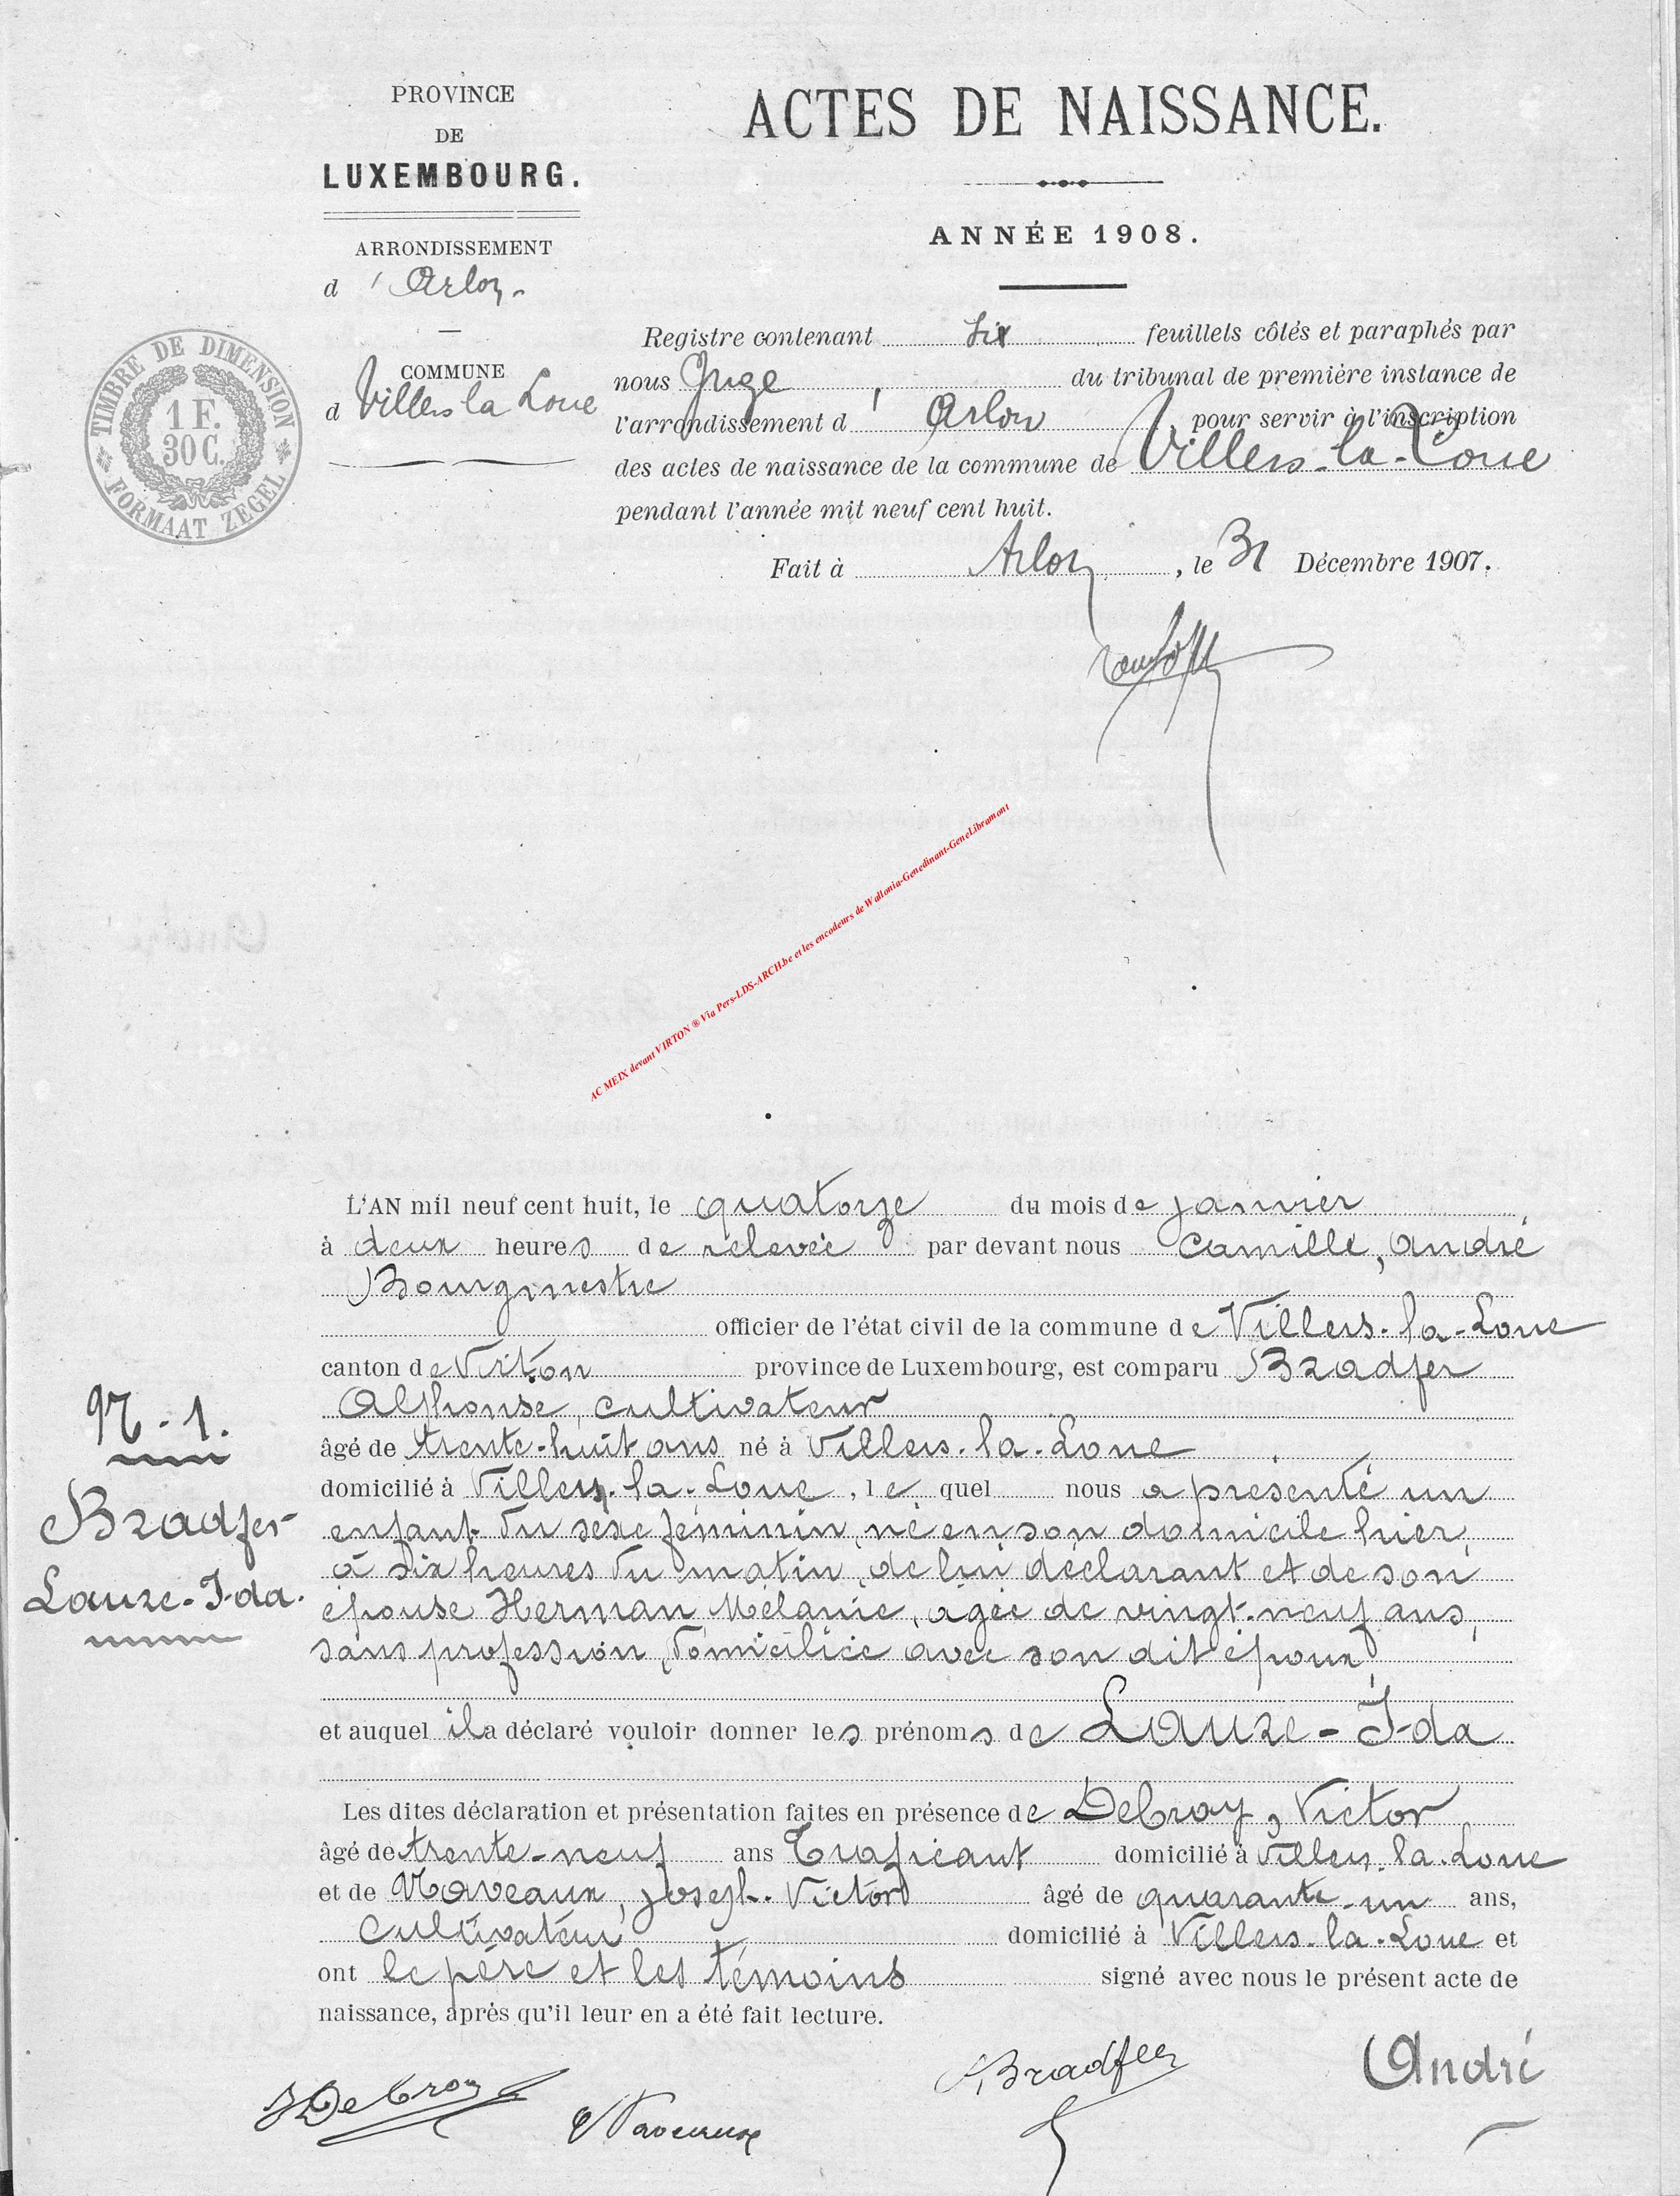 PROVINCE
DE
LUXEMBOURG.
ARRONDISSEMENT
d'Arlon.
COMMUNE
d Villers la Loue
TIMBRE DE DIMENSION
1 F.
30 C.
FORMAAT ZEGEL
ACTES DE NAISSANCE.
ANNÉE 1908.
Registre contenant six feuillets côtés et paraphés par
nous Juge du tribunal de première instance de
l'arrondissement d'Arlon pour servir à l'inscription
des actes de naissance de la commune de Villers-la-Loue
pendant l'année mit neuf cent huit.
Fait à Arlon, le 31 Décembre 1907.
AC MEIX devant VIRTON ® Via Pers-LDS-ARCH.be et les encodeurs de Wallonia-Genedinant-GeneLibramont
L'AN mil neuf cent huit, le quatorze du mois de janvier
à deux heures de relevée par devant nous Camille, André
Bourgmestre
officier de l'état civil de la commune de Villers-la-Loue
canton de Virton province de Luxembourg, est comparu Bradfer
Alphonse, cultivateur
âgé de trente-huit ans né à Villers-la-Loue
domicilié à Villers-la-Loue, le quel nous a présenté un
enfant du sexe féminin, né en son domicile hier,
à six heures du matin, de lui déclarant et de son
épouse Herman Mélanie, agée de vingt-neuf ans,
sans profession, domiciliée avec son dit époux,
et auquel il a déclaré vouloir donner les prénoms de Laure-Ida
Les dites déclaration et présentation faites en présence de Debroy, Victor
âgé de trente-neuf ans Traficant domicilié à Villers-la-Loue
et de Naveaux, Joseph-Victor âgé de quarante-un ans,
Cultivateur domicilié à Villers-la-Loue et
ont le père et les témoins signé avec nous le présent acte de
naissance, après qu'il leur en a été fait lecture.
N-1.
Bradfer
Laure-Ida.
Debroy
Naveaux
Bradfer
André